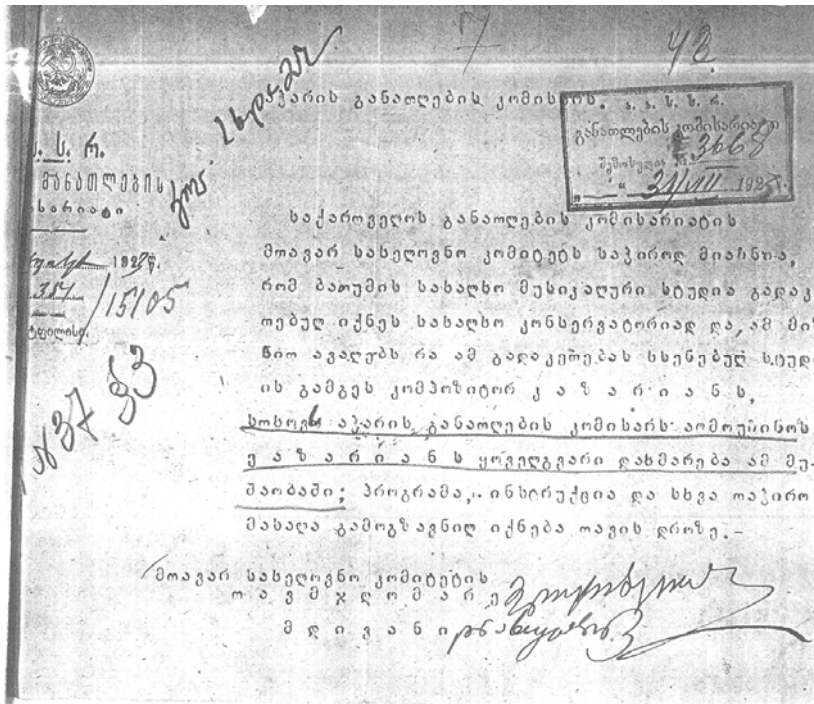 7
43.
აჭარის განათლების კომისარს.
ა. ს. ს. რ.
განათლების კომისარიატი
შემოსულია № 3668
31/VII 192
ს. ს. რ.
განათლების
სარიატი
192 წ.
357/15105
ტფილისი.
№ 37
საქართველოს განათლების კომისარიატის
მთავარ სასელოვნო კომიტეტს საჭიროდ მიაჩნია,
რომ ბათუმის სახალხო მუსიკალური სტუდია გადაკ
თებულ იქნეს სახალხო კონსერვატორიად და, ამ მიზ
ნით ავალებს რა ამ გადაკეთებას ხსენებულ სტუდი
ის გამგეს კომპოზიტორ კ ა ზ ა რ ი ა ნ ს,
სთხოვს აჭარის განათლების კომისარს აღმოუჩინოს
კ ა ზ ა რ ი ა ნ ს ყოველგვარი დახმარება ამ მუ-
შაობაში; პროგრამა, ინსტრუქცია და სხვა საჭირო
მასალა გამოგზავნილ იქნება თავის დროზე.-
მთავარ სასელოვნო კომიტეტის
თ ა ვ მ ჯ დ ო მ ა რ ე
მ დ ი ვ ა ნ ი